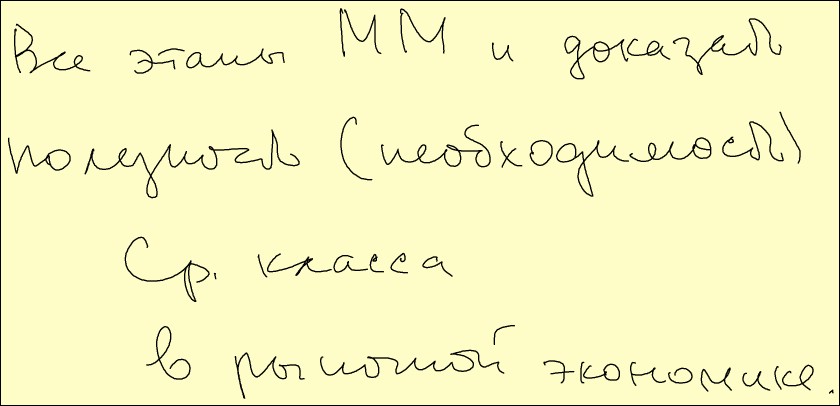 Все этапы ММ и доказать
полезность (необходимость)
Ср. класса
в рыночной экономике.